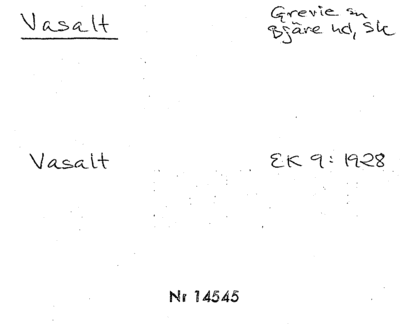 Vasalt
Grevie sn
Bjäre hd, Sk
Vasalt
EK 9: 1928
Nr 14545